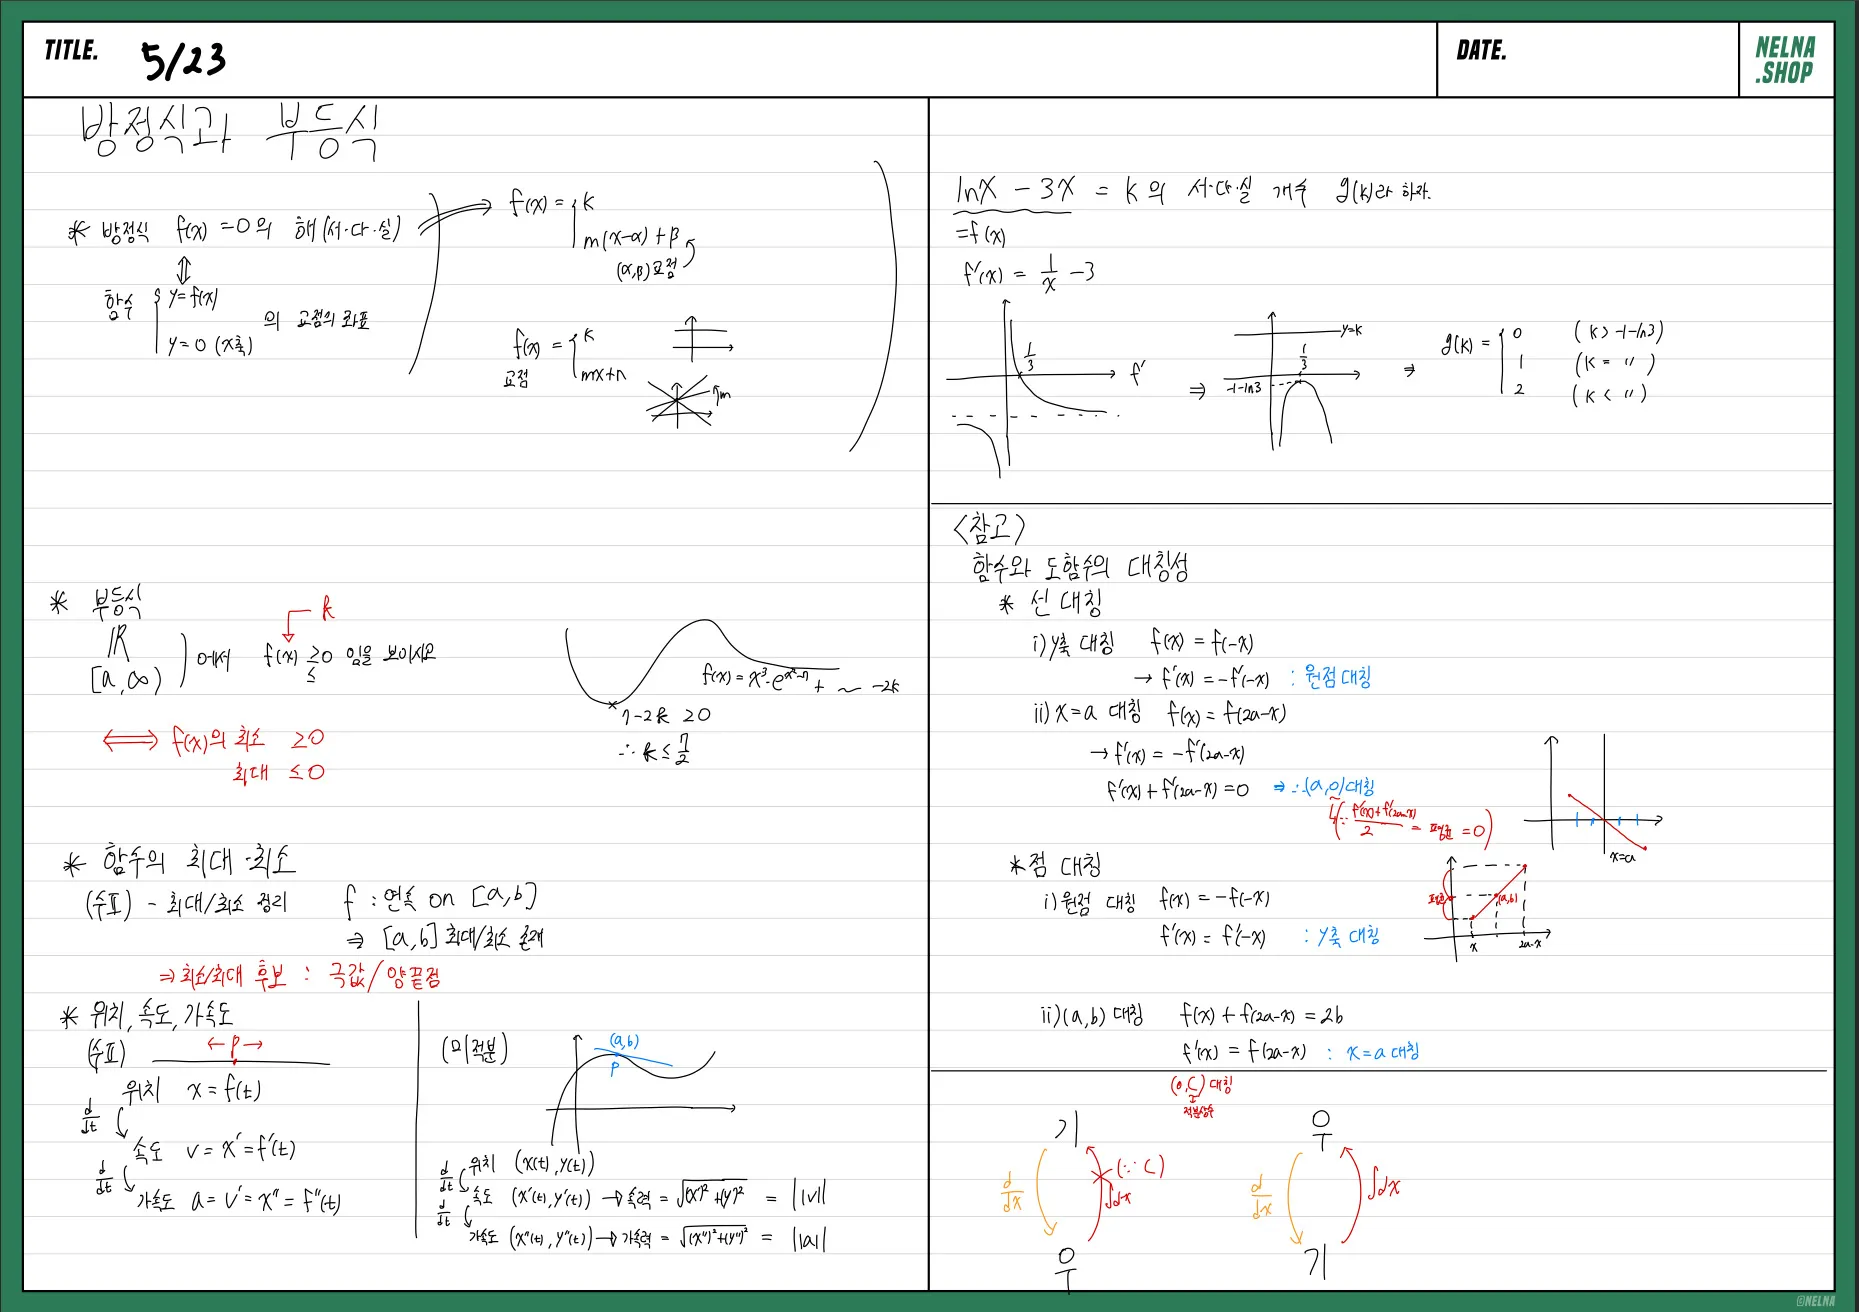 TITLE. 5/23
DATE.
NELNA
.SHOP
방정식과 부등식
* 방정식 f(x) = 0의 해(서·다·실)
⇕
함수 { y = f(x)
y = 0 (x축)
의 교점의 좌표
f(x) = { k
m(x-α) + β
(α,β) 고정
f(x) = { k
mx+n
교점
m
* 부등식
ℝ
[a, ∞)
에서 f(x) ≥ 0 임을 보이시오
≤
k
⟺ f(x)의 최소 ≥ 0
최대 ≤ 0
7-2k ≥ 0
∴ k ≤ 7/2
* 함수의 최대·최소
(수Ⅱ) - 최대/최소 정리 f : 연속 on [a,b]
⇒ [a,b] 최대/최소 존재
⇒ 최소/최대 후보 : 극값/양끝점
* 위치, 속도, 가속도
(수Ⅱ) ← P →
위치 x = f(t)
d/dt
속도 v = x' = f'(t)
d/dt
가속도 a = v' = x'' = f''(t)
(미적분)
(a,b)
P
위치 (x(t), y(t))
d/dt
속도 (x'(t), y'(t)) → 속력 = √(x')²+(y')² = |v|
d/dt
가속도 (x''(t), y''(t)) → 가속력 = √(x'')²+(y'')² = |a|
lnx - 3x = k 의 서·다·실 개수 g(k)라 하자.
= f(x)
f'(x) = 1/x - 3
1/3
f'
⇒
y=k
1/3
-1-ln3
⇒ g(k) = { 0 (k > -1-ln3)
1 (k = 〃)
2 (k < 〃)
<참고>
함수와 도함수의 대칭성
* 선 대칭
i) y축 대칭 f(x) = f(-x)
→ f'(x) = -f'(-x) : 원점 대칭
ii) x=a 대칭 f(x) = f(2a-x)
→ f'(x) = -f'(2a-x)
f'(x) + f'(2a-x) = 0 ⇒ ∴ (a,0) 대칭
(∵ f'(x)+f'(2a-x)/2 = 평균 = 0)
x=a
* 점 대칭
i) 원점 대칭 f(x) = -f(-x)
f'(x) = f'(-x) : y축 대칭
평균
(a,b)
x
2a-x
ii) (a,b) 대칭 f(x) + f(2a-x) = 2b
f'(x) = f(2a-x) : x=a 대칭
(0,C) 대칭
적분상수
기
d/dx
(∵ C)
∫dx
우
우
d/dx
∫dx
기
©NELNA